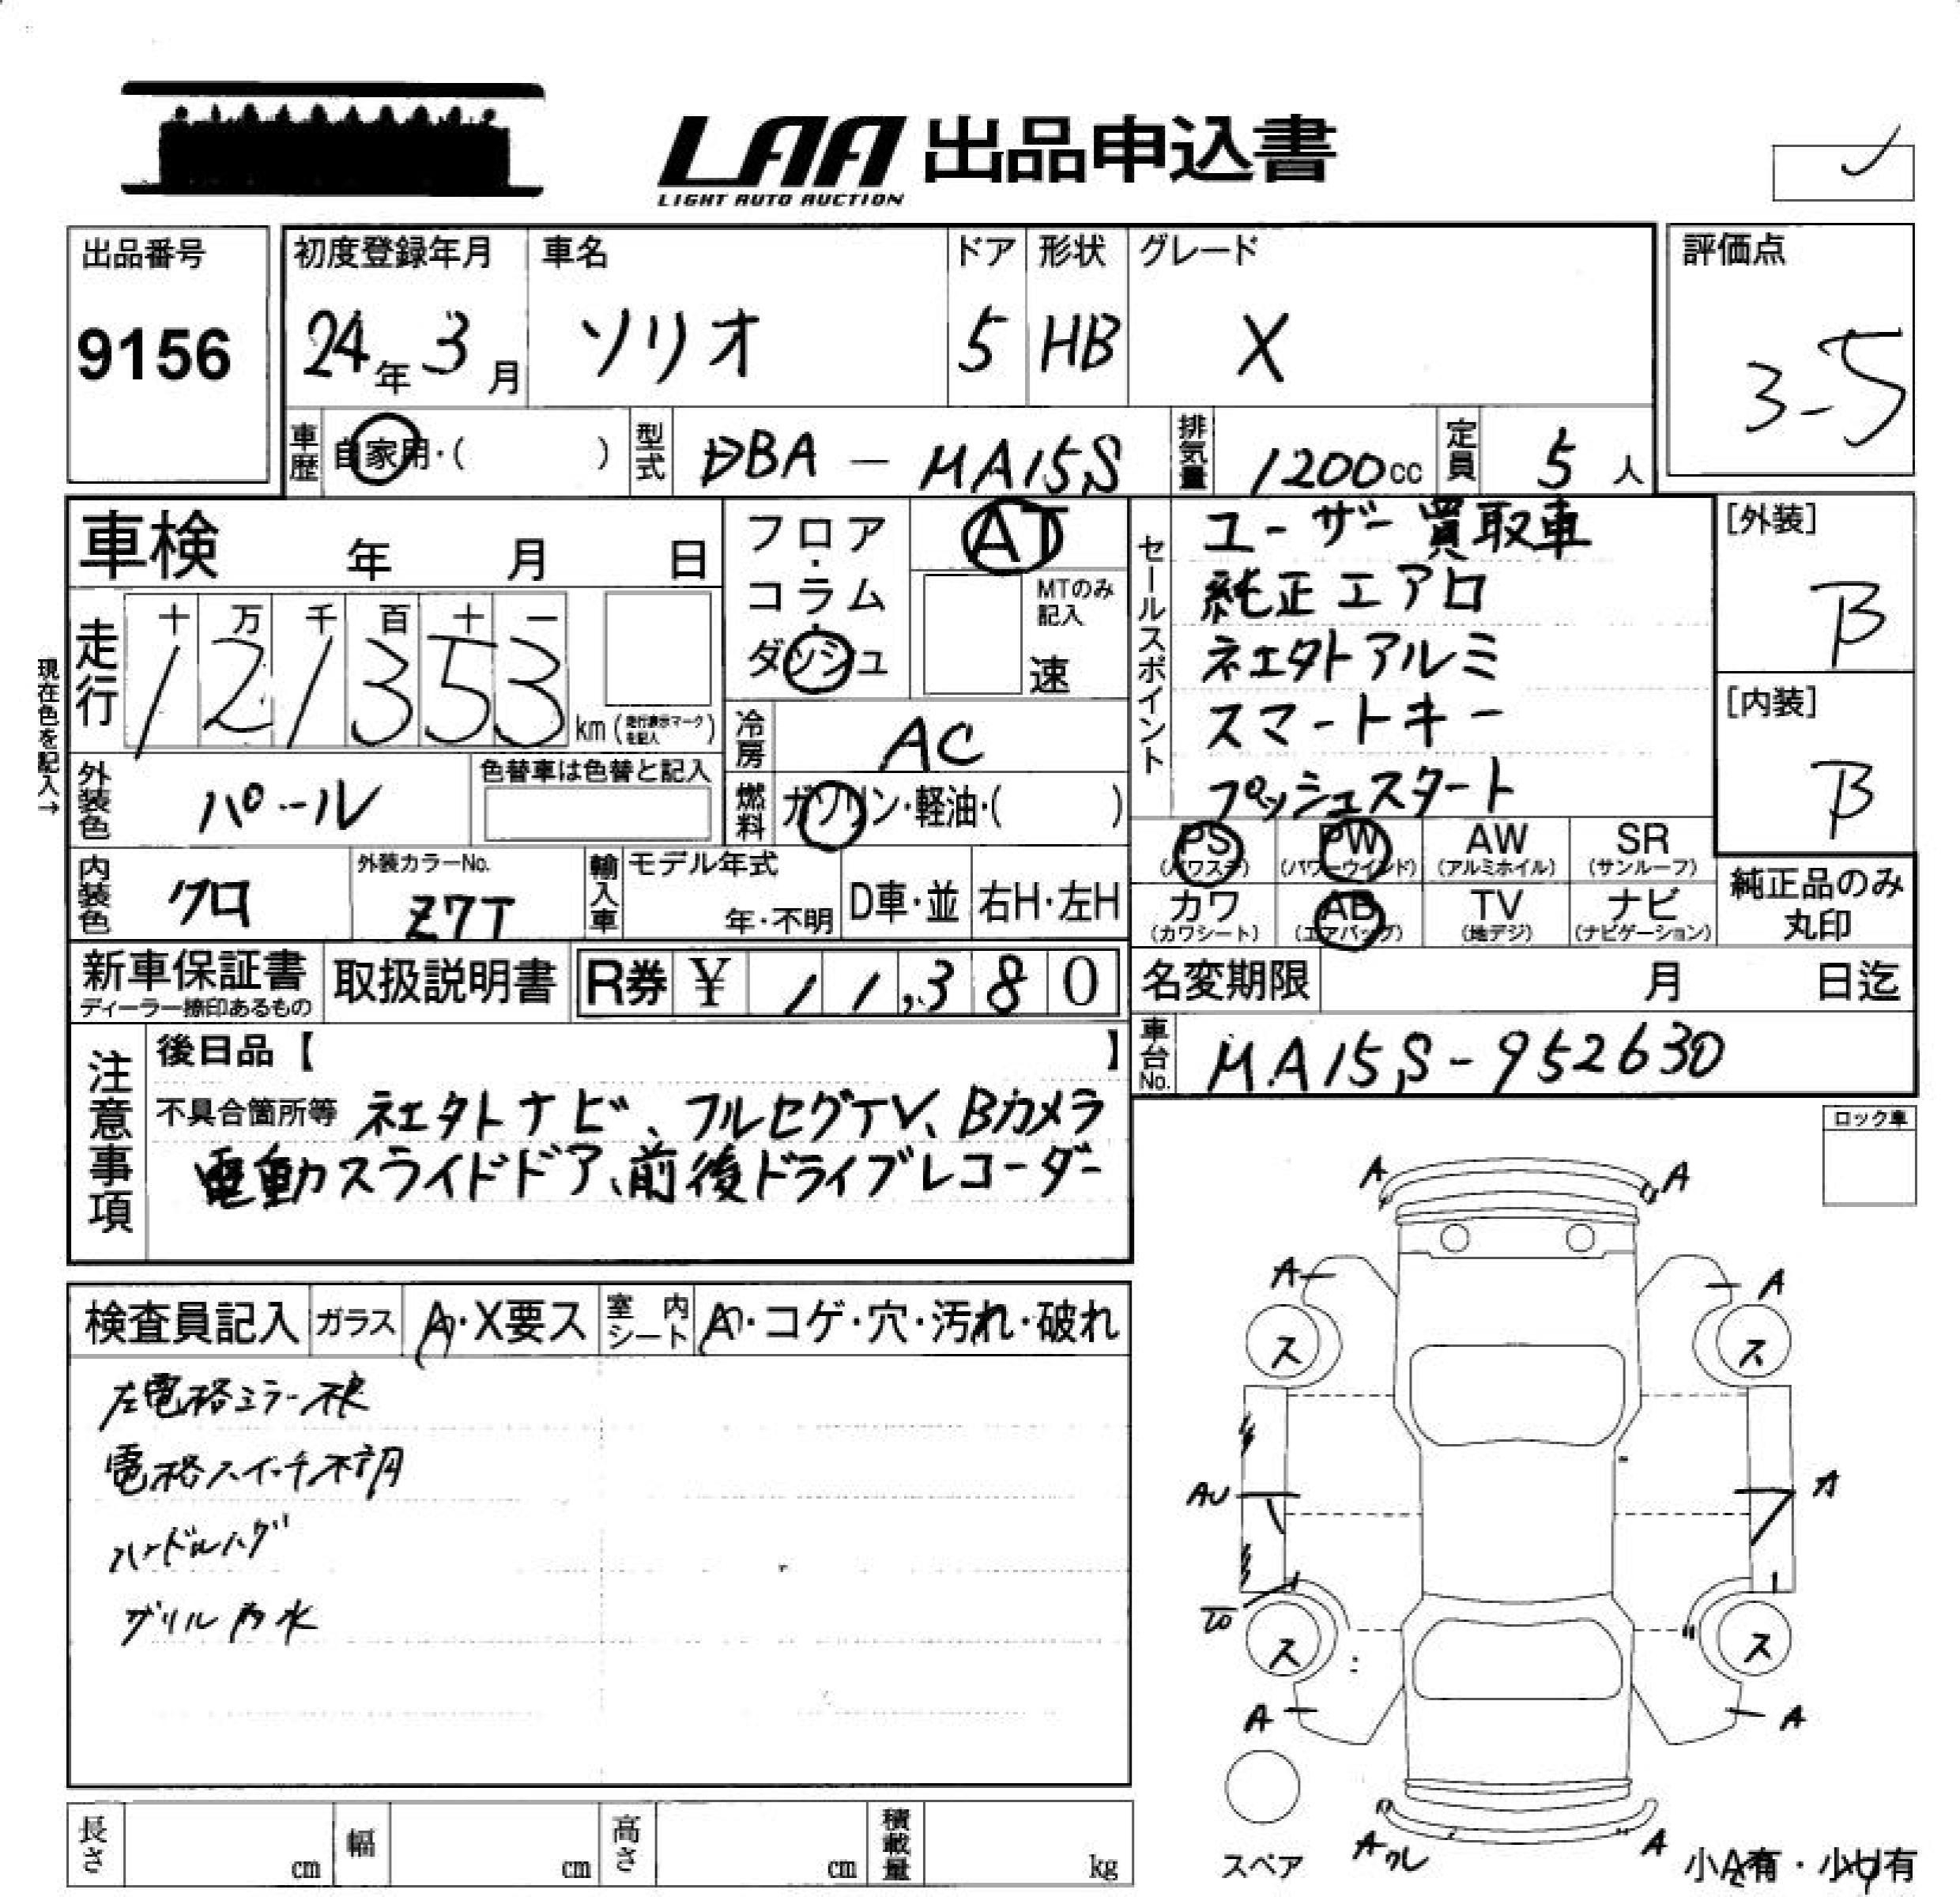 LAA 出品申込書
LIGHT AUTO AUCTION
出品番号
9156
初度登録年月
24年 3月
車名
ソリオ
ドア
5
形状
HB
グレード
X
評価点
3-5
車歴
自家用・( )
型式
DBA - MA15S
排気量
1200cc
定員
5人
車検 年 月 日
走行
十 万 千 百 十 一
121353
km (走行表示マークを記入)
現在色を記入→
外装色
パール
色替車は色替と記入
内装色
クロ
外装カラーNo.
Z7T
フロア・コラム・ダッシュ
AT
MTのみ記入
速
冷房
AC
燃料
ガソリン・軽油・( )
輸入車
モデル年式
年・不明
D車・並
右H・左H
セールスポイント
ユーザー買取車
純正エアロ
社外アルミ
スマートキー
プッシュスタート
[外装]
B
[内装]
B
PS (パワステ)
PW (パワーウインド)
AW (アルミホイル)
SR (サンルーフ)
カワ (カワシート)
AB (エアバッグ)
TV (地デジ)
ナビ (ナビゲーション)
純正品のみ丸印
新車保証書
ディーラー捺印あるもの
取扱説明書
R券 ¥ 11,380
名変期限 月 日迄
車台No.
MA15S-952630
注意事項
後日品【 】
不具合箇所等 社外ナビ、フルセグTV、Bカメラ
電動スライドドア、前後ドライブレコーダー
ロック車
検査員記入
ガラス
A・X要ス
室内シート
・コゲ・穴・汚れ・破れ
左電格ミラー不良
電格スイッチ不調
ハンドルハゲ
グリル内水
A A
A A
ス ス
AU A
ス ス
A A
Aワレ A
スペア
小A有・小U有
長さ cm
幅 cm
高さ cm
積載量 kg